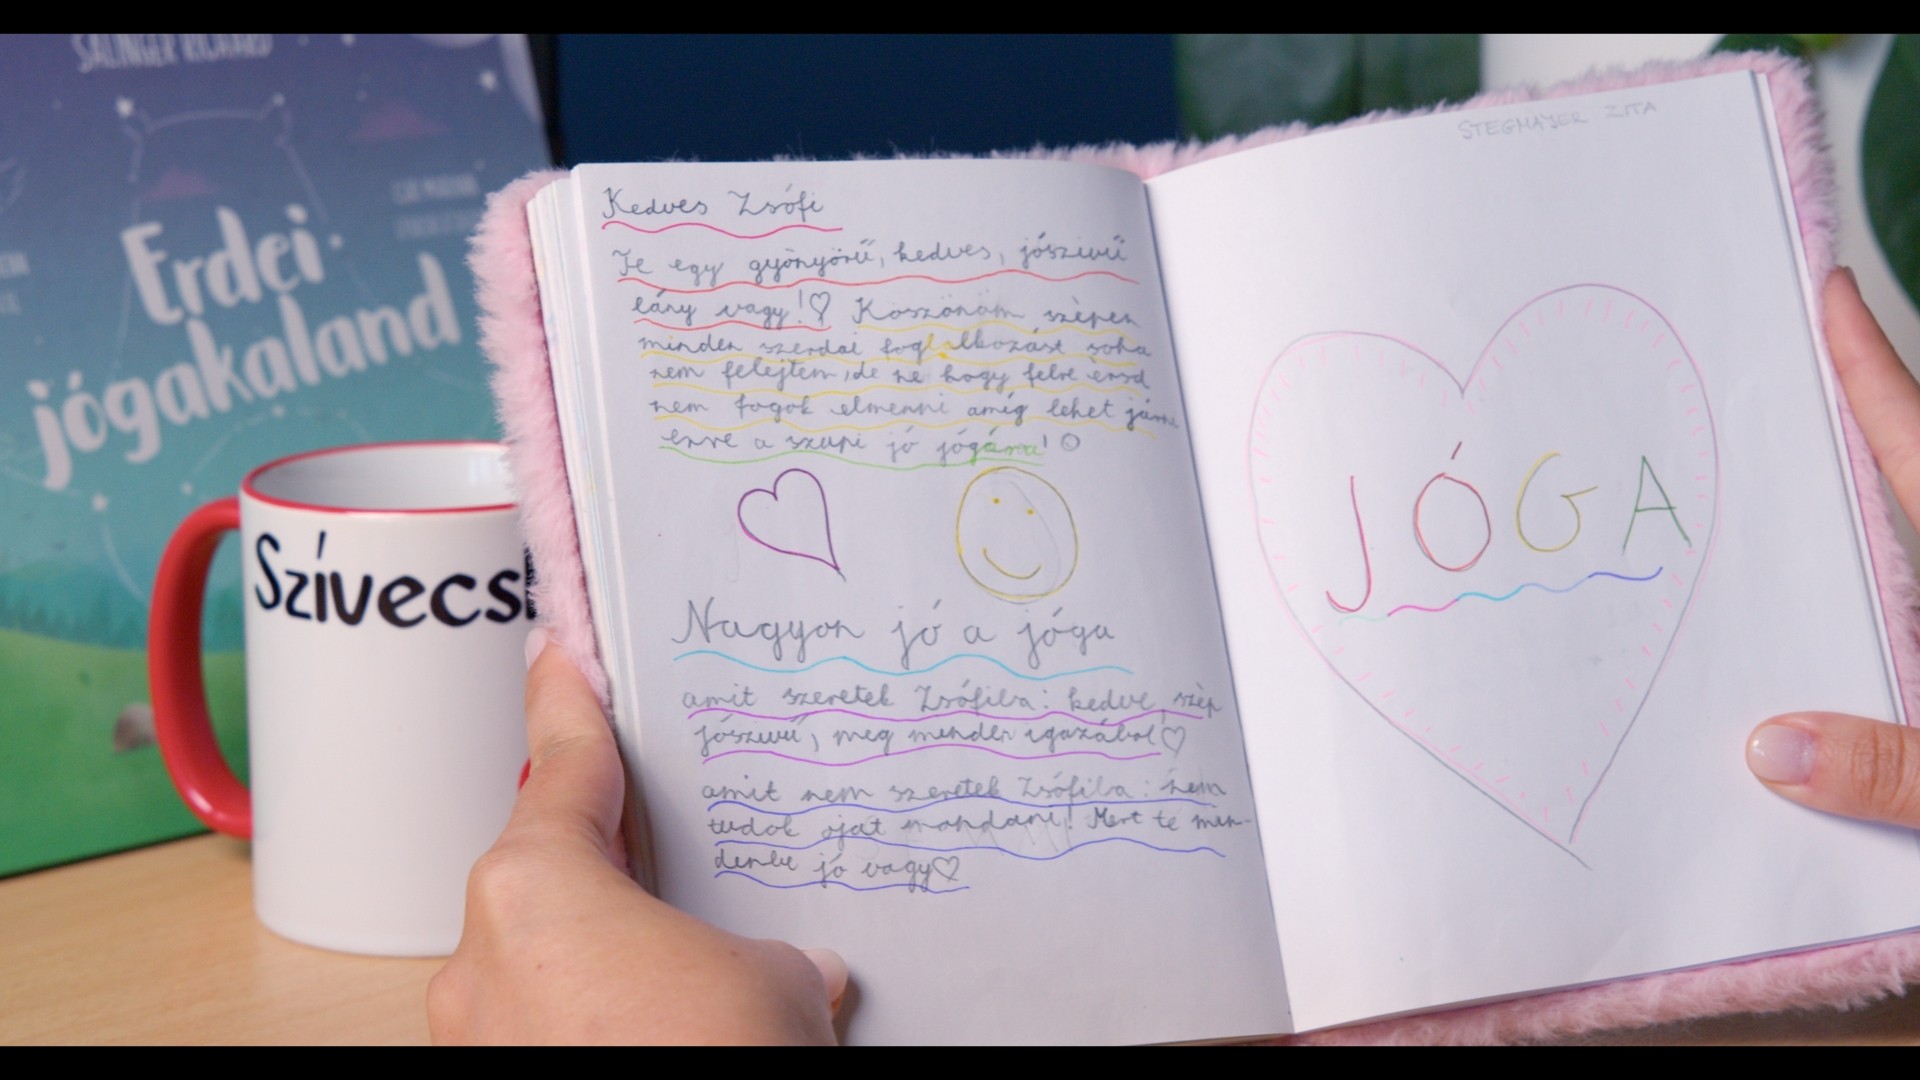 SALINGER RICHÁRD
Erdei
jógakaland
Szívecsk
Kedves Zsófi
Te egy gyönyörű, kedves, jószivű
lány vagy!♡ Köszönöm szépen
minden szerdai foglalkozást soha
nem felejtem, de ne hogy félre érsd
nem fogok elmenni amíg lehet járni
erre a szupi jó jógára! ☺
Nagyon jó a jóga
amit szeretek Zsófiba: kedve, szép
jószivű, meg minden igazából♡
amit nem szeretek Zsófiba: nem
tudok ojat mondani! Mert te min-
denbe jó vagy♡
STEGMAJER ZITA
JÓGA